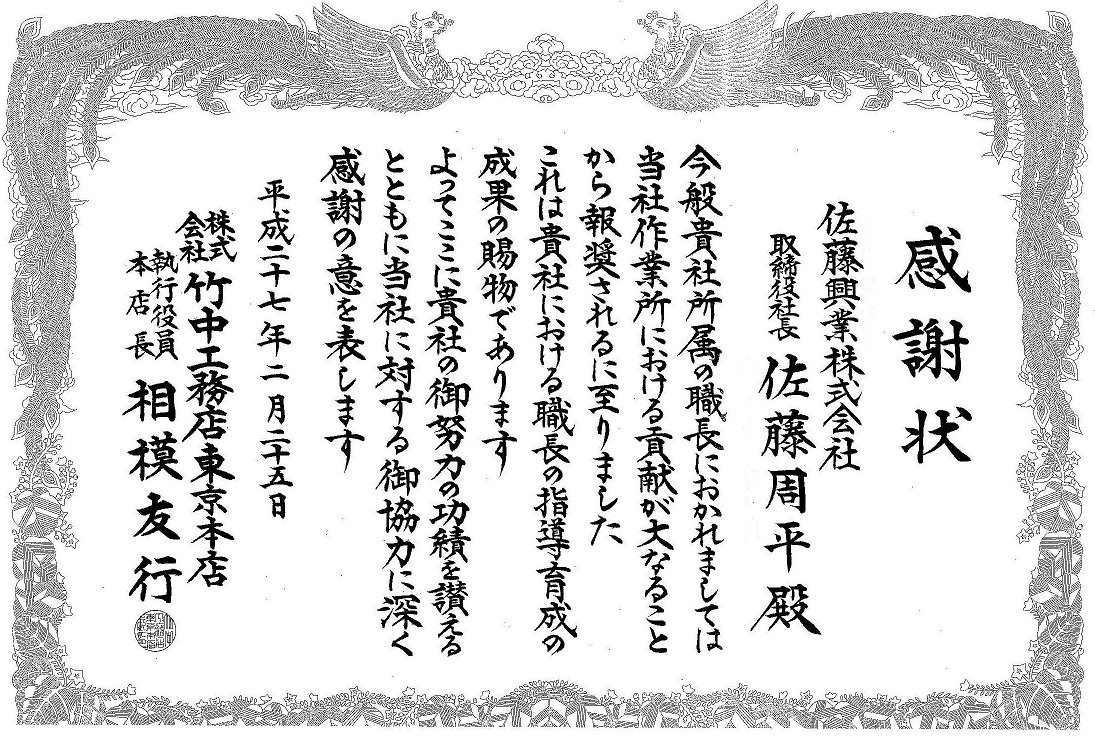 感謝状
佐藤興業株式会社
取締役社長 佐藤周平殿
今般貴社所属の職長におかれましては
当社作業所における貢献が大なること
から報奨されるに至りました
これは貴社における職長の指導育成の
成果の賜物であります
よってここに貴社の御努力の功績を讃える
とともに当社に対する御協力に深く
感謝の意を表します
平成二十七年二月二十五日
株式会社竹中工務店東京本店
執行役員本店長 相模友行